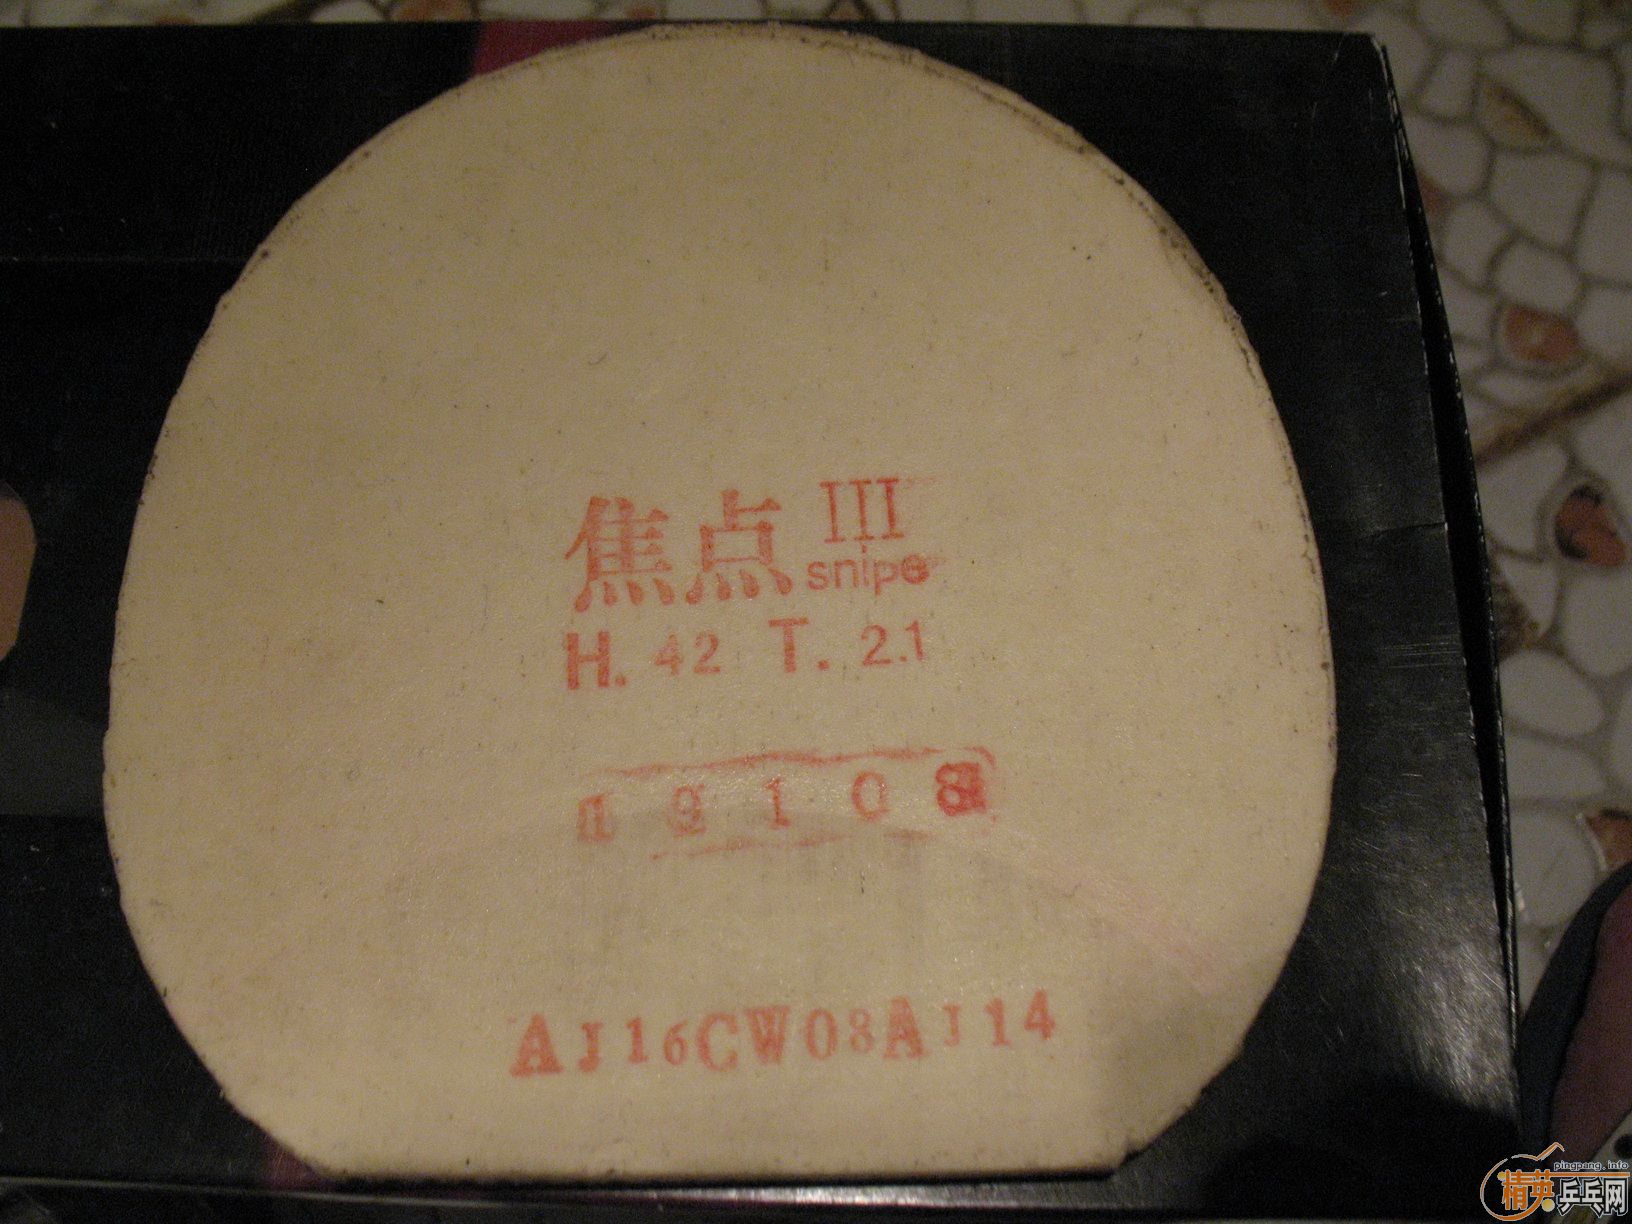 焦点 III
snipe
H. 42 T. 2.1
AJ16CW08AJ14
pingpang.info
精英乒乓网